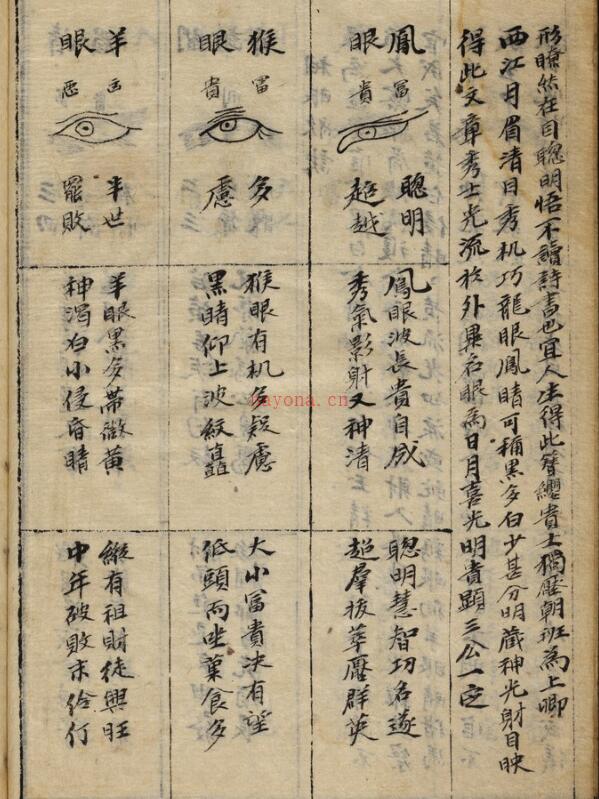 形瞭然在目聰明悟不讀詩書也宜人生得此簪纓貴士獨歷朝班為上卿
西江月眉清目秀机巧龍眼鳳睛可稱黑多白少甚分明藏神光射目映
得此文章秀士光流於外異名眼為日月喜光明貴顯三公一定
鳳眼
富貴
聰明
超越
鳳眼波長貴自成
秀氣影射又神清
聰明慧智功名遂
超羣拔萃壓群英
猴眼
富貴
多慮
猴眼有机多疑慮
黑睛仰上波紋矗
大小富貴決有望
低頭而坐菓食多
羊眼
凶惡
半世
罷敗
羊眼黑多帶微黃
神濁白小侵昏睛
縱有祖財徒興旺
中年破敗末伶仃
kayona.cn